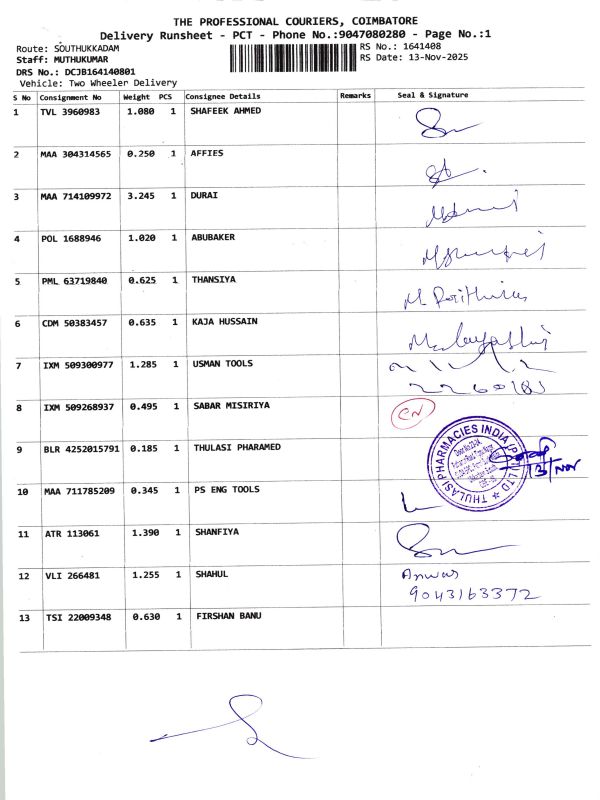 THE PROFESSIONAL COURIERS, COIMBATORE
Delivery Runsheet - PCT - Phone No.:9047080280 - Page No.:1
Route: SOUTHUKKADAM RS No.: 1641408
Staff: MUTHUKUMAR RS Date: 13-Nov-2025
DRS No.: DCJB164140801
Vehicle: Two Wheeler Delivery
S No Consignment No Weight PCS Consignee Details Remarks Seal & Signature
1 TVL 3960983 1.080 1 SHAFEEK AHMED
2 MAA 304314565 0.250 1 AFFIES
3 MAA 714109972 3.245 1 DURAI
4 POL 1688946 1.020 1 ABUBAKER
5 PML 63719840 0.625 1 THANSIYA
6 CDM 50383457 0.635 1 KAJA HUSSAIN
7 IXM 509300977 1.285 1 USMAN TOOLS
8 IXM 509268937 0.495 1 SABAR MISIRIYA CN
9 BLR 4252015791 0.185 1 THULASI PHARAMED
THULASI PHARMACIES INDIA (P) LTD
13/Nov
10 MAA 711785209 0.345 1 PS ENG TOOLS
11 ATR 113061 1.390 1 SHANFIYA
12 VLI 266481 1.255 1 SHAHUL Anwar
9043163372
13 TSI 22009348 0.630 1 FIRSHAN BANU